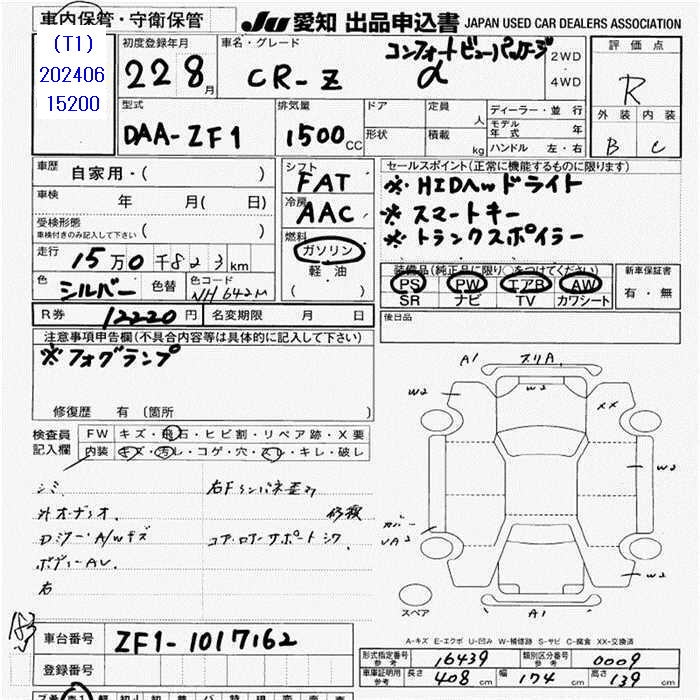 車内保管・守衛保管
JU 愛知 出品申込書 JAPAN USED CAR DEALERS ASSOCIATION
(T1)
202406
15200
初度登録年月
22 8月
車名・グレード
コンフォートビューパッケージ
CR-Z α
2WD
・
4WD
評価点
R
外装 内装
B C
型式
DAA-ZF1
排気量
1500cc
ドア
形状
定員 人
積載 kg
ディーラー・並行
モデル年式 年
ハンドル 左・右
車歴 自家用・( )
車検 年 月( 日)
受検形態
車検付きのみ記入して下さい ( )
走行 15万0千823km
色 シルバー 色替 色コード NH642M
シフト
FAT
冷房
AAC
燃料
ガソリン
軽・油
( )
セールスポイント(正常に機能するものに限ります)
※ HIDヘッドライト
※ スマートキー
※ トランクスポイラー
装備品(純正品に限り○をつけてください)
PS PW エアB AW
SR ナビ TV カワシート
新車保証書
有・無
R券 12220円 名変期限 月 日
後日品
注意事項申告欄(不具合内容等は具体的に記入して下さい)
※フォグランプ
修復歴 有(箇所 )
検査員記入欄
FW キズ・飛石・ヒビ割・リペア跡・X要
内装 キズ・汚レ・コゲ・穴・スレ・キレ・破レ
シミ
外オーディオ.
Dミラー・A/Wキズ
ボディーAU.
右
修複
コア・ロアーサポートシワ
A1 スリA
W2 W2 XX
W2
カバー
UA2
W2
スペア
A1
183
A-キズ E-エクボ U-凹み W-補修跡 S-サビ C-腐食 XX-交換済
車台番号 ZF1-1017162
登録番号
形式指定番号 参考 16439 類別区分番号 参考 0009
車庫証明用 参考 長さ 408cm 幅 174cm 高さ 139cm